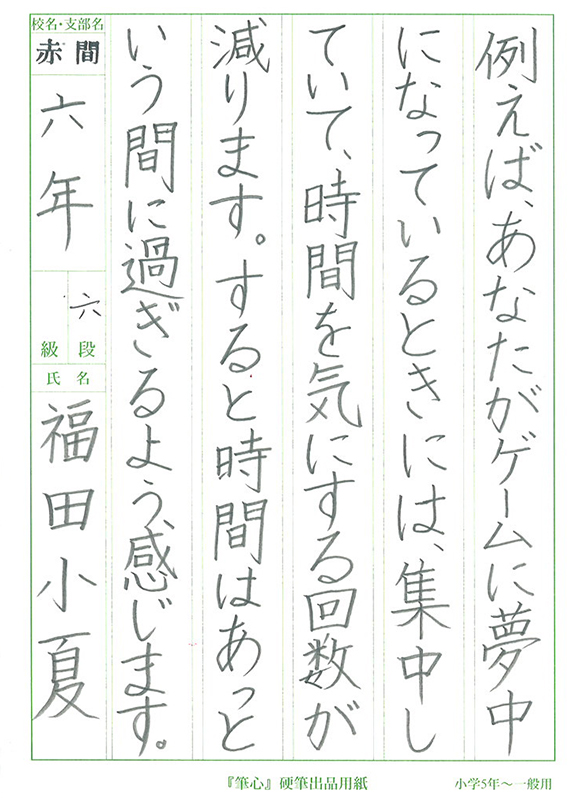 例えば、あなたがゲームに夢中
になっているときには、集中し
ていて、時間を気にする回数が
減ります。すると時間はあっと
いう間に過ぎるよう、感じます。
校名・支部名
赤間
六年
六
級 段
氏 名
福田小夏
『筆心』硬筆出品用紙
小学5年～一般用